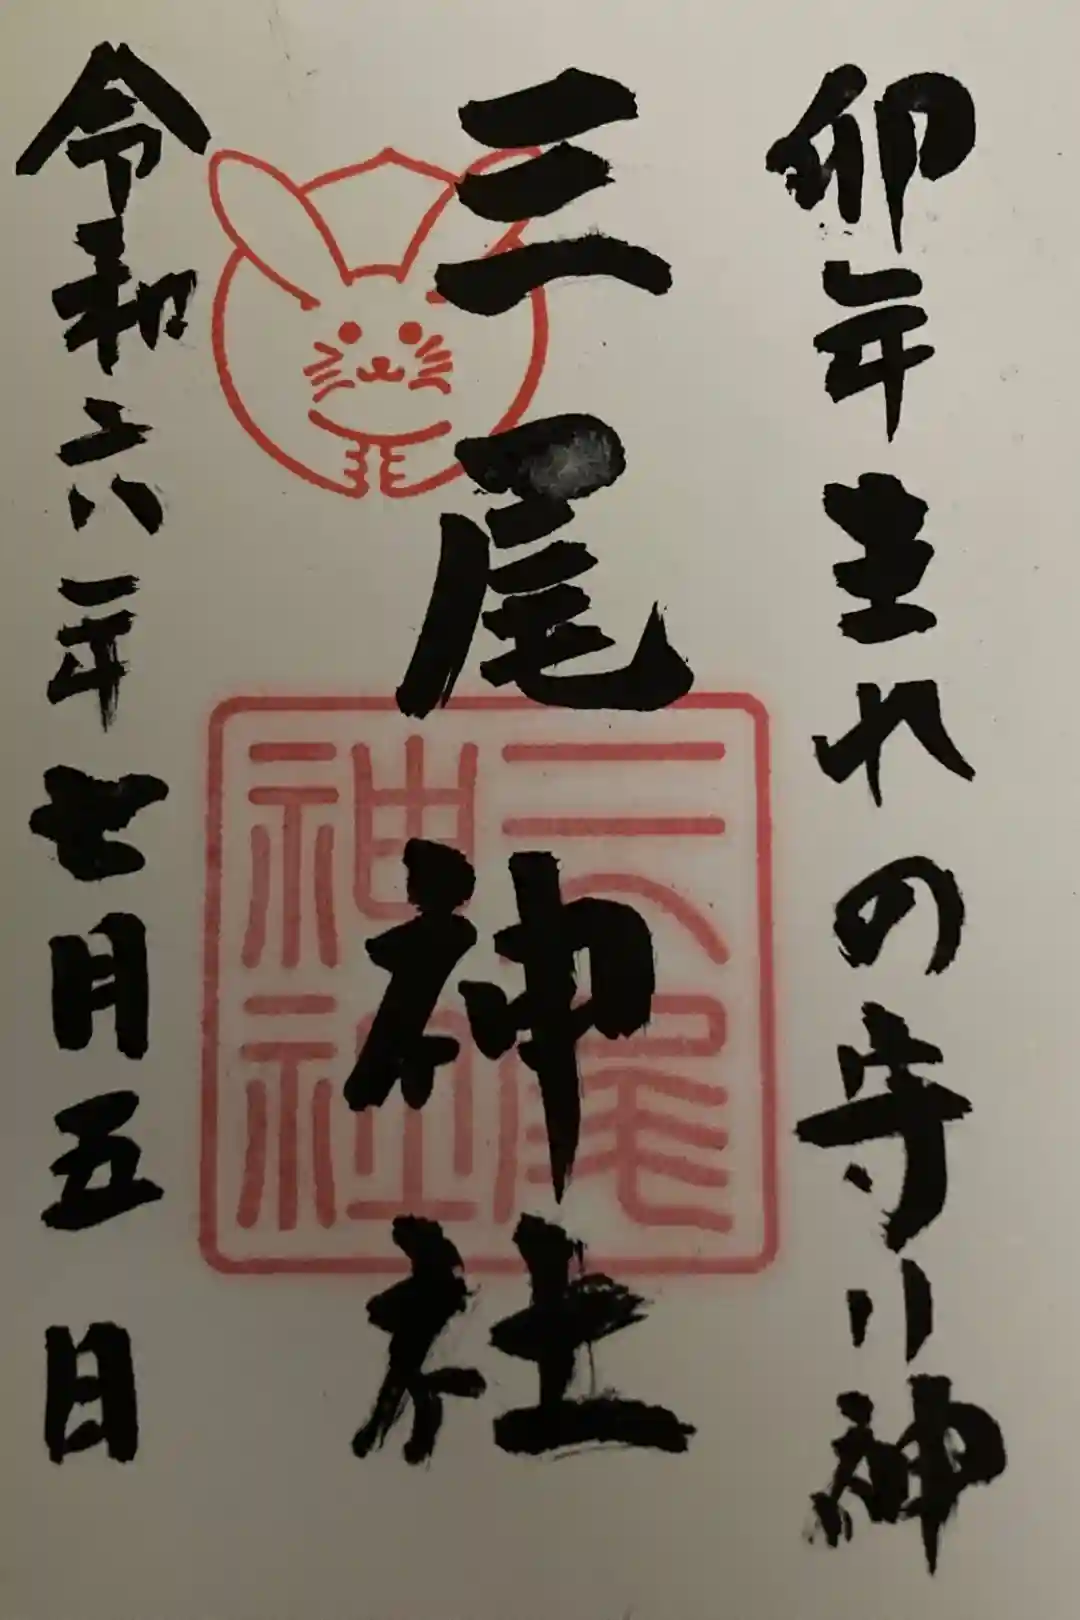 卯年生れの守り神
三尾神社
三尾
神社
令和六年七月五日